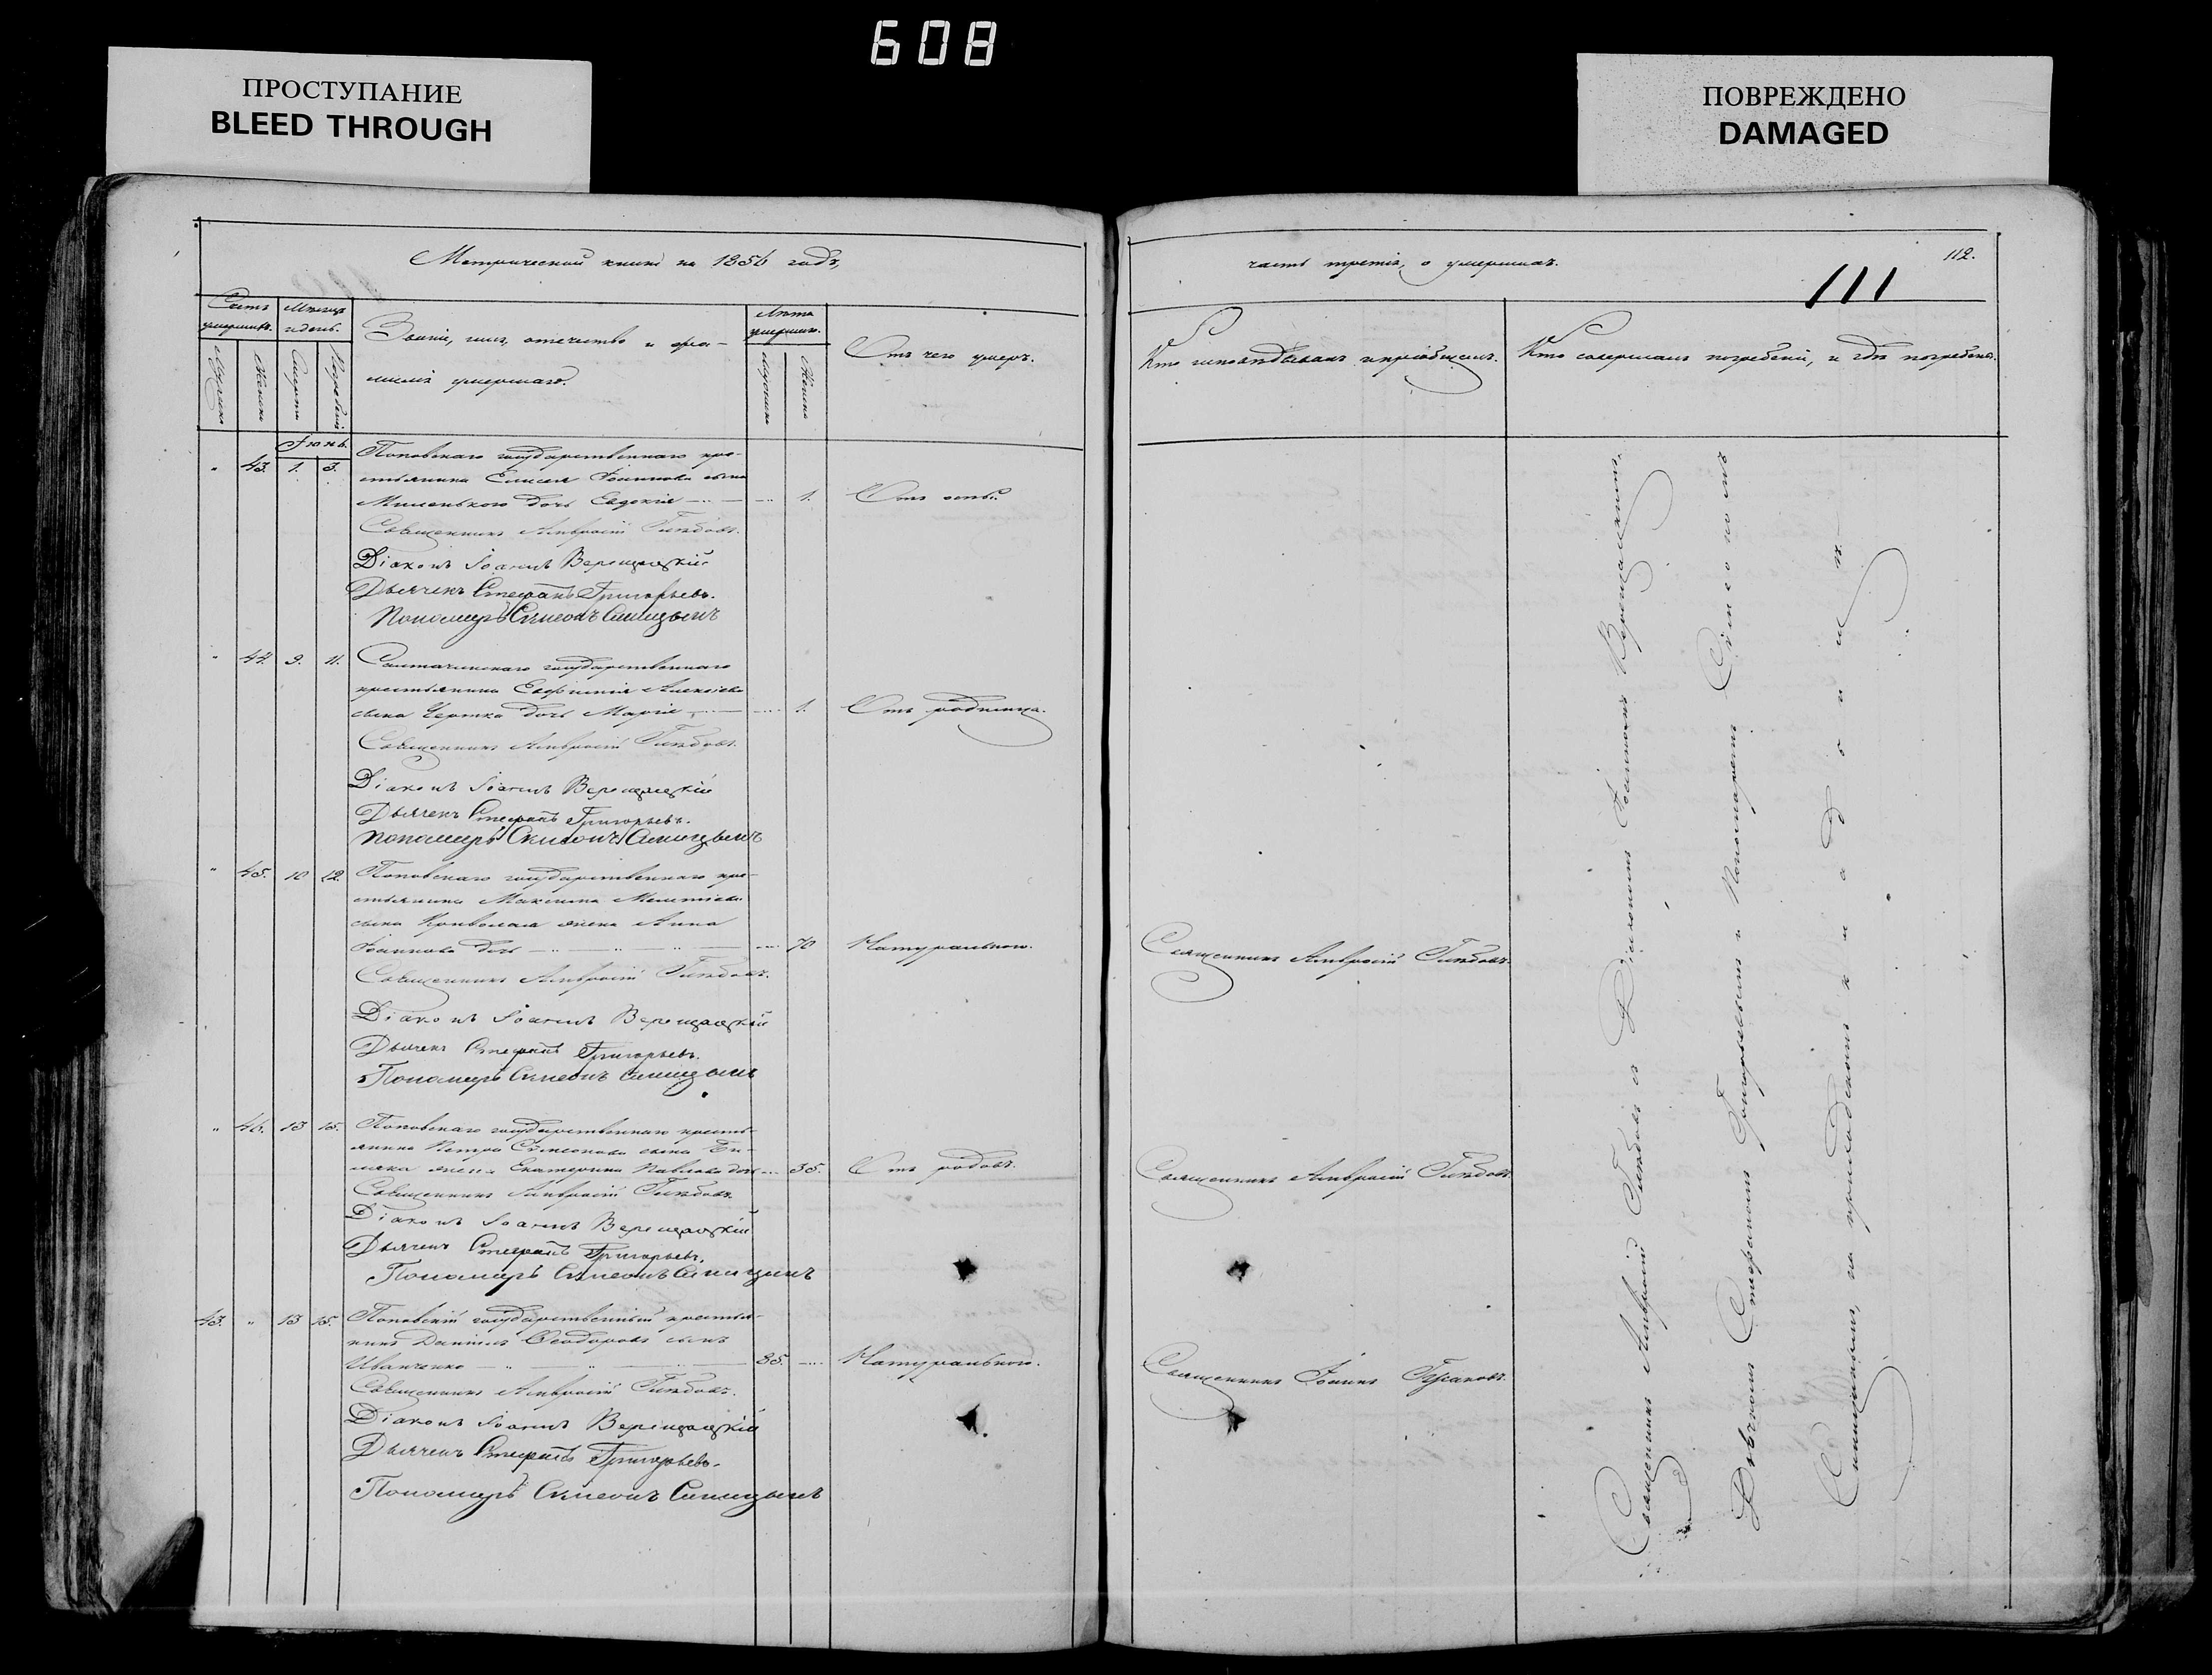 608
ПРОСТУПАНИЕ
BLEED THROUGH
ПОВРЕЖДЕНО
DAMAGED
Метрической книги на 1856 годъ,
Счетъ умершихъ.
Мѣсяцъ и день.
Званіе, имя, отечество и фа-
милія умершаго.
Лѣта умершаго.
Отъ чего умеръ.
Мужеска
Женска
Смерти
Погребенія
Мужеска
Женска
Іюнь.
" 43. 1. 3. Поповскаго государственнаго кре-
стьянина Елисея Іоаннова сына
Миленького дочь Евдокія 1. Отъ оспы.
Священникъ Амвросій Гнѣдовъ.
Діаконъ Іоаннъ Верещацкій
Дьячекъ Стефанъ Григорьевъ.
Пономарь Симеонъ Синицынъ
" 44. 9. 11. государственнаго
крестьянина Евфимія Алексѣева
сына дочь Марія 1. Отъ родимца.
Священникъ Амвросій Гнѣдовъ.
Діаконъ Іоаннъ Верещацкій
Дьячекъ Стефанъ Григорьевъ.
Пономарь Симеонъ Синицынъ
" 45. 10 12. Поповскаго государственнаго кре-
стьянина Максима Мелетіева
сына жена Анна
Іоаннова дочь 70 Натурального.
Священникъ Амвросій Гнѣдовъ.
Діаконъ Іоаннъ Верещацкій
Дьячекъ Стефанъ Григорьевъ.
Пономарь Симеонъ Синицынъ
" 46. 13 15. Поповскаго государственнаго кресть-
янина Петра Сѵмеонова сына
жена Екатерина Павлова дочь 35. Отъ родовъ.
Священникъ Амвросій Гнѣдовъ.
Діаконъ Іоаннъ Верещацкій
Дьячекъ Стефанъ Григорьевъ.
Пономарь Симеонъ Синицынъ
43. " 13 15. Поповскій государственный крестья-
нинъ Даніилъ Ѳеодоровъ сынъ
Иванченко 85. Натурального.
Священникъ Амвросій Гнѣдовъ.
Діаконъ Іоаннъ Верещацкій
Дьячекъ Стефанъ Григорьевъ.
Пономарь Симеонъ Синицынъ
часть третія, о умершихъ.
112.
111
Кто исповѣдывалъ и пріобщалъ.
Кто совершалъ погребеніе, и гдѣ погребены.
Священникъ Амвросій Гнѣдовъ.
Священникъ Амвросій Гнѣдовъ.
Священникъ Іоаннъ
Священникъ Амвросій Гнѣдовъ съ Діакономъ Іоанномъ Верещацкимъ,
Дьячкомъ Стефаномъ Григорьевымъ и Пономаремъ Сѵмеономъ
Синицынымъ, на приходскомъ кладбищѣ.